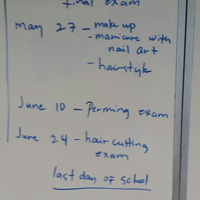 final exam
may 27 - make up
- manicure with
nail art
- hairstyle
June 10 - Perming exam
June 24 - hair cutting
exam
last day of school